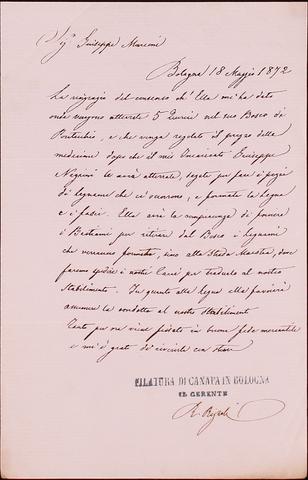 Sigr Giuseppe Marconi
Bologna 18 Maggio 1872
La ringrazio del consenso ch'Ella mi ha dato
onde vengono atterrate 5 Quercie nel suo Bosco di
e che venga regolato il prezzo delle
medesime dopo che il mio Incaricato Giuseppe
Negrini le avrà atterrate, segate per fare i pezzi
di legname che ci occorrono, e formate la legna
e i fasci. Ella avrà la compiacenza di fornire
i Bestiami per ritirar dal Bosco i legnami
che verranno fino alla Strada Maestra, dove
faremo spedire i nostri Carri per tradurlo al nostro
Stabilimento. In quanto alla legna ella favorirà
assumere la condotta al nostro Stabilimento
Tanto per ora viene in buona fede mercantile
e mi è grato di riverirla con stima
FILATURA DI CANAPA IN BOLOGNA
IL GERENTE